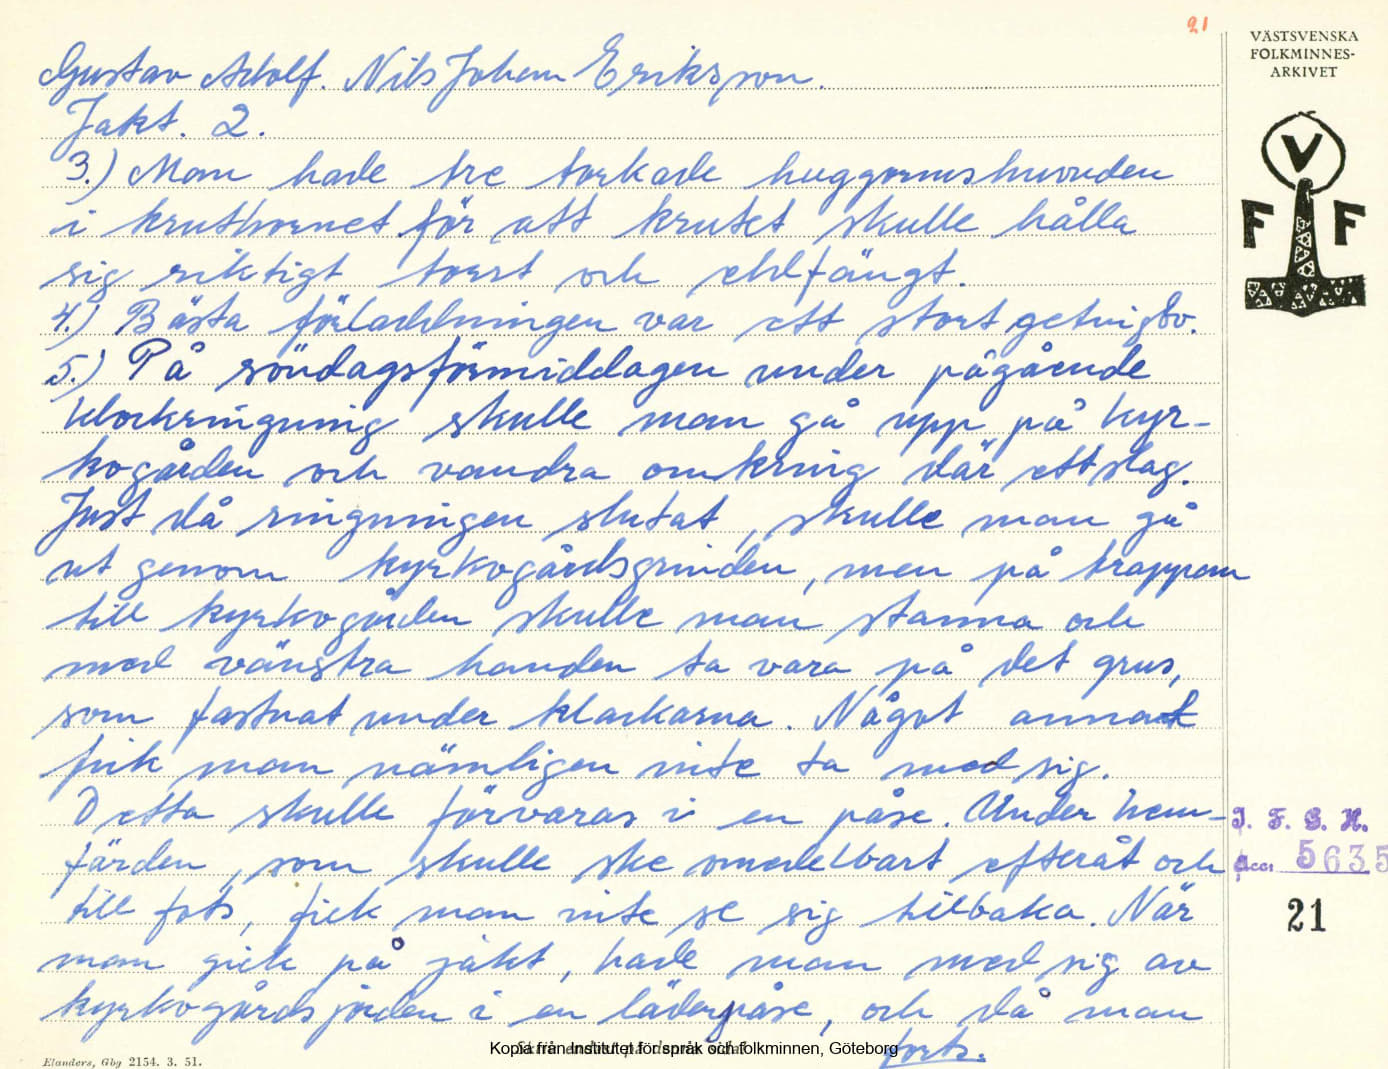 21
VÄSTSVENSKA
FOLKMINNES-
ARKIVET
V
F F
Gustav Adolf. Nils Johan Eriksson.
Jakt. 2.
3.) Man hade tre torkade huggormshuvuden
i kruthornet för att krutet skulle hålla
sig riktigt torrt och eldfängt.
4.) Bästa förladdningen var ett stort getingbo.
5.) På söndagsförmiddagen under pågående
klockringning skulle man gå upp på kyr-
kogården och vandra omkring där ett slag.
Just då ringningen slutat, skulle man gå
ut genom kyrkogårdsgrinden, men på trappan
till kyrkogården skulle man stanna och
med vänstra handen ta vara på det grus,
som fastnat under klackarna. Något annat
fick man nämligen inte ta med sig.
Detta skulle förvaras i en påse. Under hem-
färden, som skulle ske omedelbart efteråt och
till fots, fick man inte se sig tillbaka. När
man gick på jakt, hade man med sig av
kyrkogårdsjorden i en läderpåse, och då man
forts.
I. F. G. H.
acc. 5635
21
Kopia från Institutet för språk och folkminnen, Göteborg
Elanders, Gbg 2154. 3. 51.